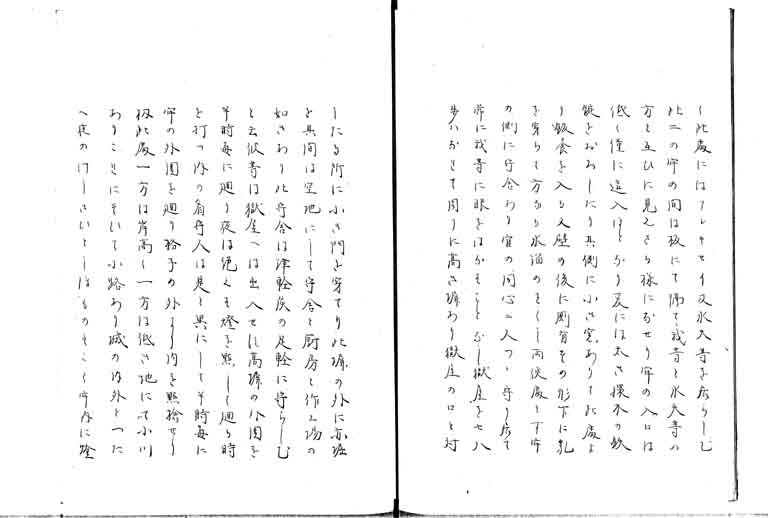 く此處にはアレキセイ及水夫等を居らしむ
此二の牢の間は板にて隔て我等と水夫等の
方と互ひに見えさる様になせり牢の入口は
低く僅に這入ほとなり戻には太き横木の鉄
錠をおろしたり其側に小さき窓ありて此處よ
り飯食を入る又壁の後に厠有その形下に乱
を穿ちて方なる水溜のことくし両便處と牢
の側に守舎あり官の同心二人つゝ守り居て
常に我等に眼をはなすことなし獄屋を七八
歩はなれて周りに高き塀あり獄屋の口と対
したる所に小さき門を穿てり此塀の外に亦塀
を其間は空地にして守舎と厨房と作工場の
如きあり此守舎は津軽侯の足軽に守らしむ
と云彼等は獄屋へは出入せす高塀の外圍を
半時毎に廻り夜は絶えす燈を點して廻り時
を打つ内の看守人は是と異にして半時毎に
牢の外圍を廻り格子の外より内を點撿せり
扨此處一方は岸高く一方は低き地にて小川
ありこれにそいて小路あり城の内外とつた
へ夜の